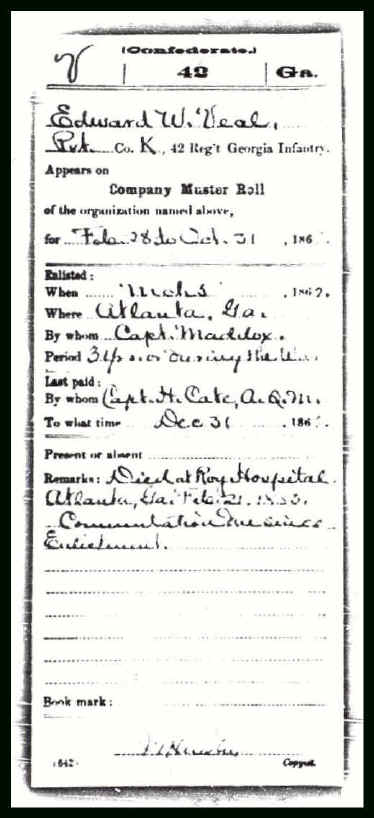 (Confederate.)
V | 42 | Ga.
Edward W. Veal,
Pvt. Co. K, 42 Reg't Georgia Infantry.
Appears on
Company Muster Roll
of the organization named above,
for Feb. 28 to Oct. 31, 186
Enlisted:
When Mch 5, 1862.
Where Atlanta, Ga.
By whom Capt. Maddox.
Period 3 yrs. or during the War
Last paid:
By whom Capt. H. Cate, A.Q.M.
To what time Dec 31, 186
Present or absent
Remarks: Died at Roy Hospital
Atlanta, Ga. Feb. 21. 1863.
Commutation due since
Enlistment.
Book mark:
(642)
Copyist.